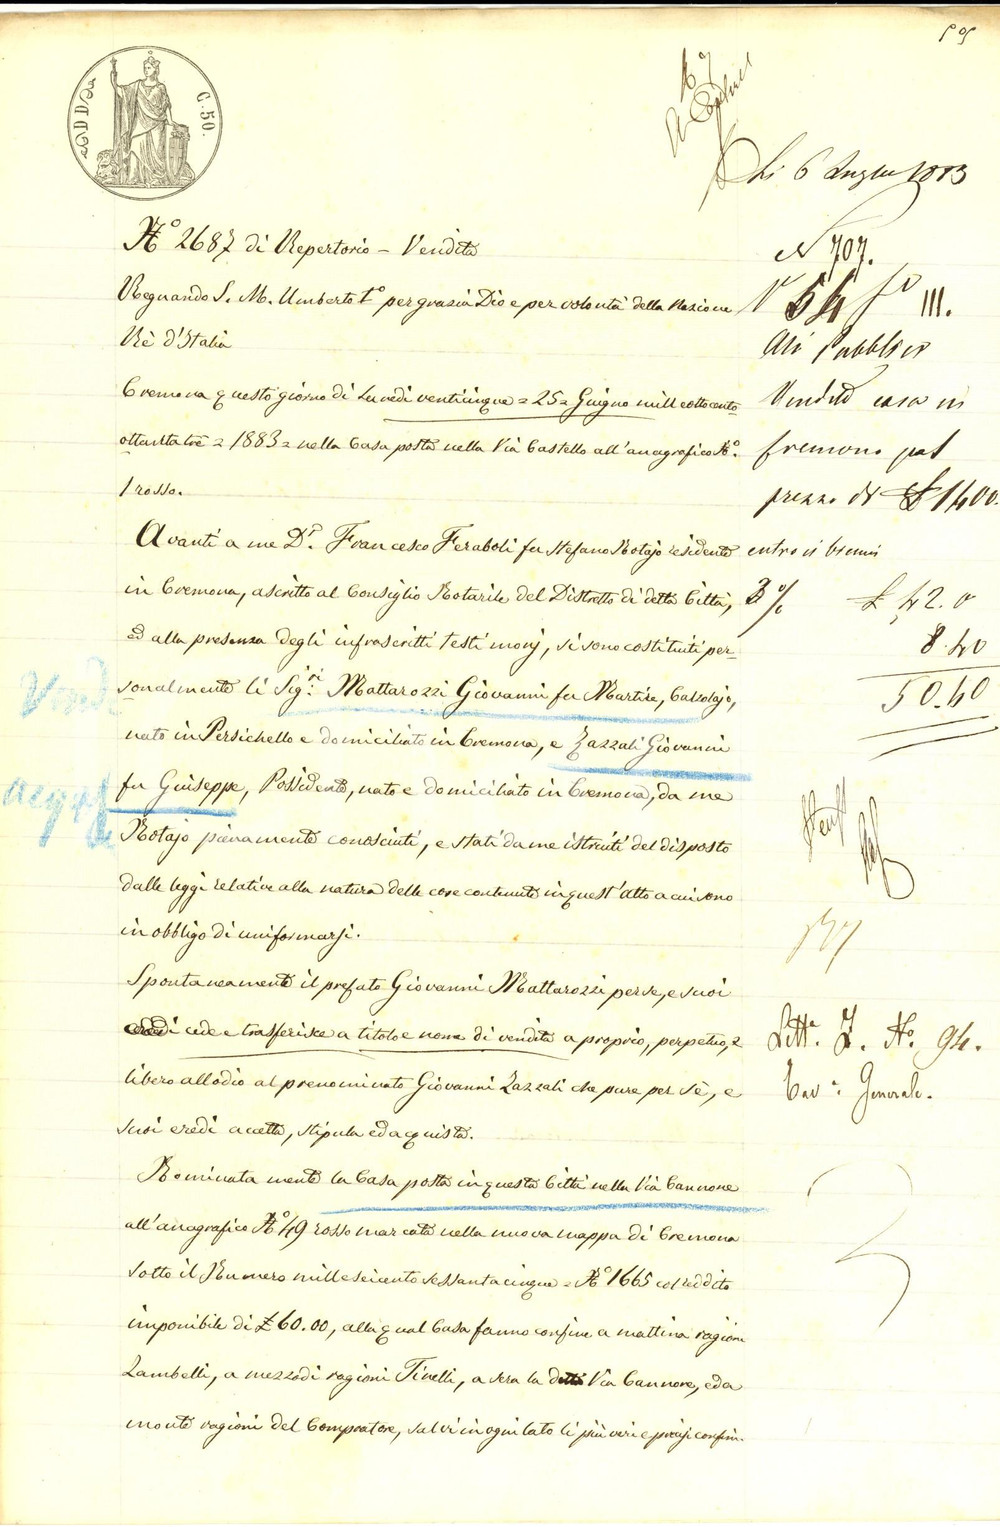 C. 50.
Li 6 Luglio 1883
N° 2687 di Repertorio – Vendita
N 707.
Regnando S. M. Umberto I° per grazia Dio e per volontà della Nazione
N° 54 f° III.
Rè d'Italia
Atti Pubblici
Cremona questo giorno di Lunedì venticinque = 25 = Giugno mille ottocento
Vendita casa in
ottantatrè = 1883 = nella Casa posta nella Via Castello all'anagrafico N°.
Cremona pel
1 rosso.
prezzo di £ 1400.
Avanti a me Dr. Francesco Feraboli fu Stefano Notajo residente
entro il biennio
in Cremona, ascritto al Consiglio Notarile del Distretto di detta Città,
3 % £ 42. 0
ed alla presenza degli infrascritti testimonj, si sono costituiti per-
8. 40
sonalmente li Sigri. Mattarozzi Giovanni fu Martire, Calzolajo,
Vend
50. 40
nato in Persichello e domiciliato in Cremona, e Zazzali Giovanni
fu Giuseppe, Possidente, nato e domiciliato in Cremona, da me
acq
Notajo pienamente conosciuti, e stati da me istruiti del disposto
dalle leggi relative alla natura delle cose contenute in quest'atto a cui sono
in obbligo di uniformarsi.
Spontaneamente il prefato Giovanni Mattarozzi per se, e suoi
eredi cede e trasferisce a titolo e nome di vendita a proprio, perpetuo, e
Litta. Z. N°. 94.
libero allodio al prenominato Giovanni Zazzali che pure per sè, e
Tava. Generale.
suoi eredi accetta, stipula ed acquista.
Nominatamente la Casa posta in questa Città nella Via Cannone
all'anagrafico N° 49 rosso marcata nella nuova mappa di Cremona
sotto il Numero mille seicento sessantacinque = N° 1665 col reddito
imponibile di £ 60.00, alla qual Casa fanno confine a mattina ragioni
Lambelli, a mezzodì ragioni Tinelli, a sera la detta Via Cannone, ed a
monte ragioni del Compratore, salvi in ogni lato li più veri e precisi confini.